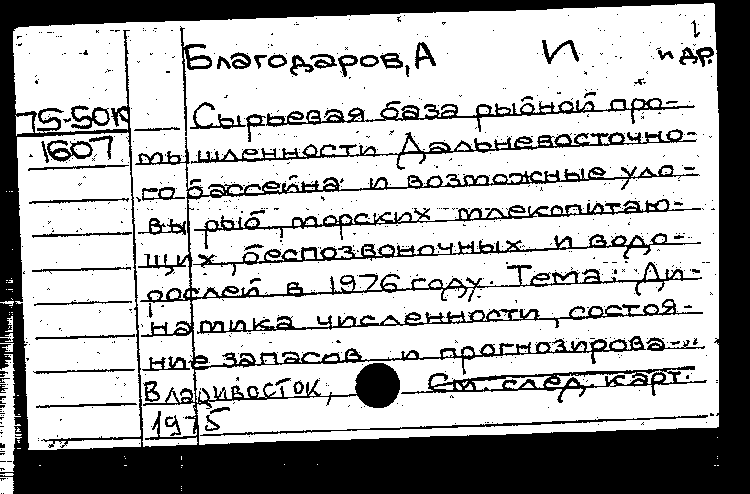 Благодаров, А И и др.
75-50К Сырьевая база рыбной про-
1607 мышленности Дальневосточно-
го бассейна и возможные уло-
вы рыб, морских млекопитаю-
щих, беспозвоночных и водо-
рослей в 1976 году. Тема: Ди-
намика численности, состоя-
ние запасов и прогнозирова-..
Владивосток, См. след. карт.
1975